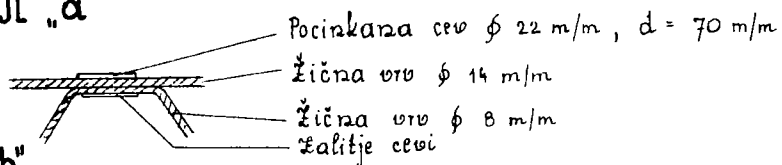 „a
Pocinkana cev ϕ 22 m/m , d = 70 m/m
Žična vrv ϕ 14 m/m
Žična vrv ϕ 8 m/m
Zalitje cevi
b"